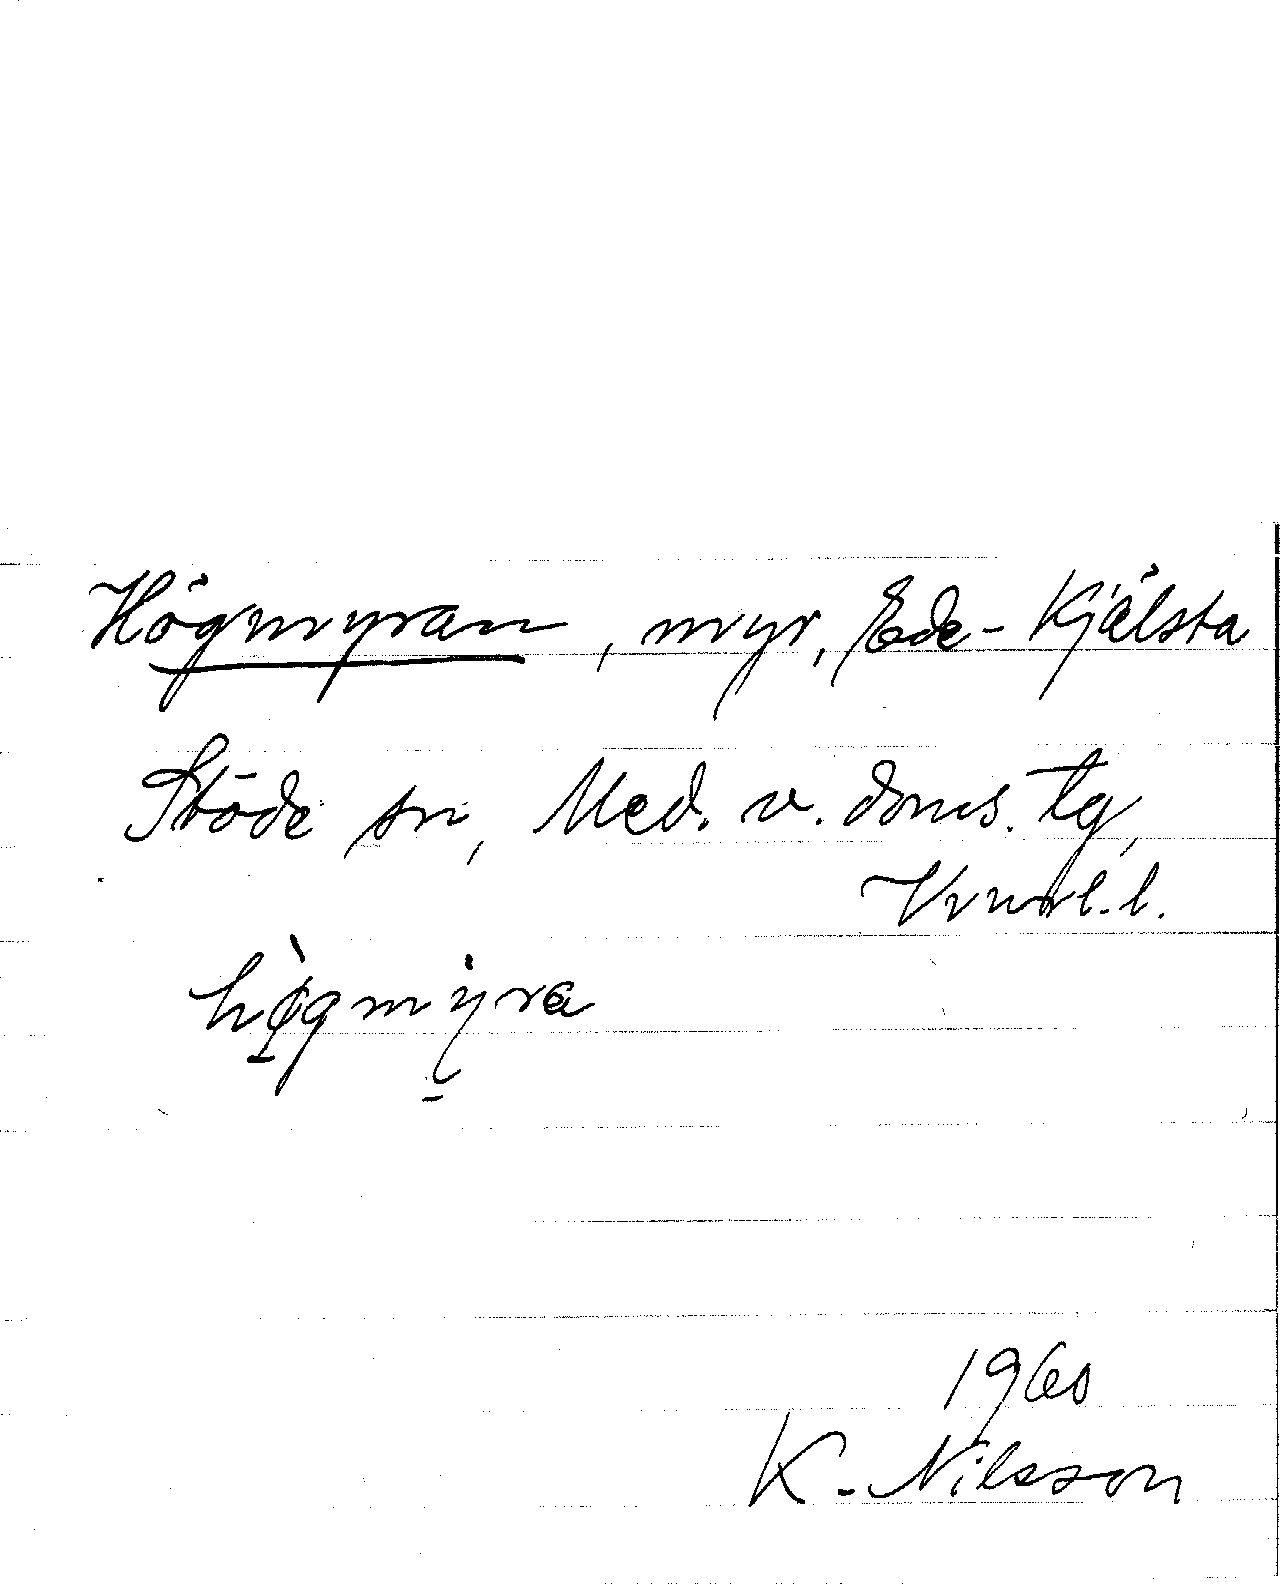 Högmyran, myr, Ede-Kjälsta
Stöde sn, Med. v. doms. tg,
Vnorl. l.
hø̀gmỳra
1960
K. Nilsson